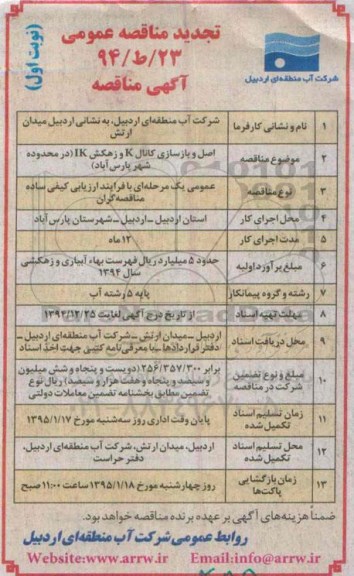 تجدید مناقصه عمومی
۲۳/ط/۹۴
آگهی مناقصه
(نوبت اول)
شرکت آب منطقه‌ای اردبیل
۱ نام و نشانی کارفرما شرکت آب منطقه‌ای اردبیل، به نشانی اردبیل میدان
ارتش
۲ موضوع مناقصه اصل و بازسازی کانال K و زهکش IK (در محدوده
شهر پارس آباد)
۳ نوع مناقصه عمومی یک مرحله‌ای با فرایند ارزیابی کیفی ساده
مناقصه‌گران
۴ محل اجرای کار استان اردبیل ــ اردبیل ــ شهرستان پارس آباد
۵ مدت اجرای کار ۱۲ ماه
۶ مبلغ برآورد اولیه حدود ۵ میلیارد ریال فهرست بهاء آبیاری و زهکشی
سال ۱۳۹۴
۷ رشته و گروه پیمانکار پایه ۵ رشته آب
۸ مهلت تهیه اسناد از تاریخ درج آگهی لغایت ۱۳۹۴/۱۲/۲۵
۹ محل دریافت اسناد اردبیل ــ میدان ارتش ــ شرکت آب منطقه‌ای اردبیل ــ
دفتر قراردادها ــ با معرفی‌نامه کتبی جهت اخذ اسناد
۱۰ مبلغ و نوع تضمین
شرکت در مناقصه برابر ۲۵۶/۳۵۷/۳۰۰ ریال (دویست و پنجاه و شش میلیون
و سیصد و پنجاه و هفت هزار و سیصد) ریال نوع
تضمین مطابق بخشنامه تضمین معاملات دولتی
۱۱ زمان تسلیم اسناد
تکمیل شده پایان وقت اداری روز سه‌شنبه مورخ ۱۳۹۵/۱/۱۷
۱۲ محل تسلیم اسناد
تکمیل شده اردبیل، میدان ارتش، شرکت آب منطقه‌ای اردبیل،
دفتر حراست
۱۳ زمان بازگشایی
پاکت‌ها روز چهارشنبه مورخ ۱۳۹۵/۱/۱۸ ساعت ۱۱:۰۰ صبح
ضمناً هزینه‌های آگهی بر عهده برنده مناقصه خواهد بود.
روابط عمومی شرکت آب منطقه‌ای اردبیل
Website:www.arrw.ir Email:info@arrw.ir